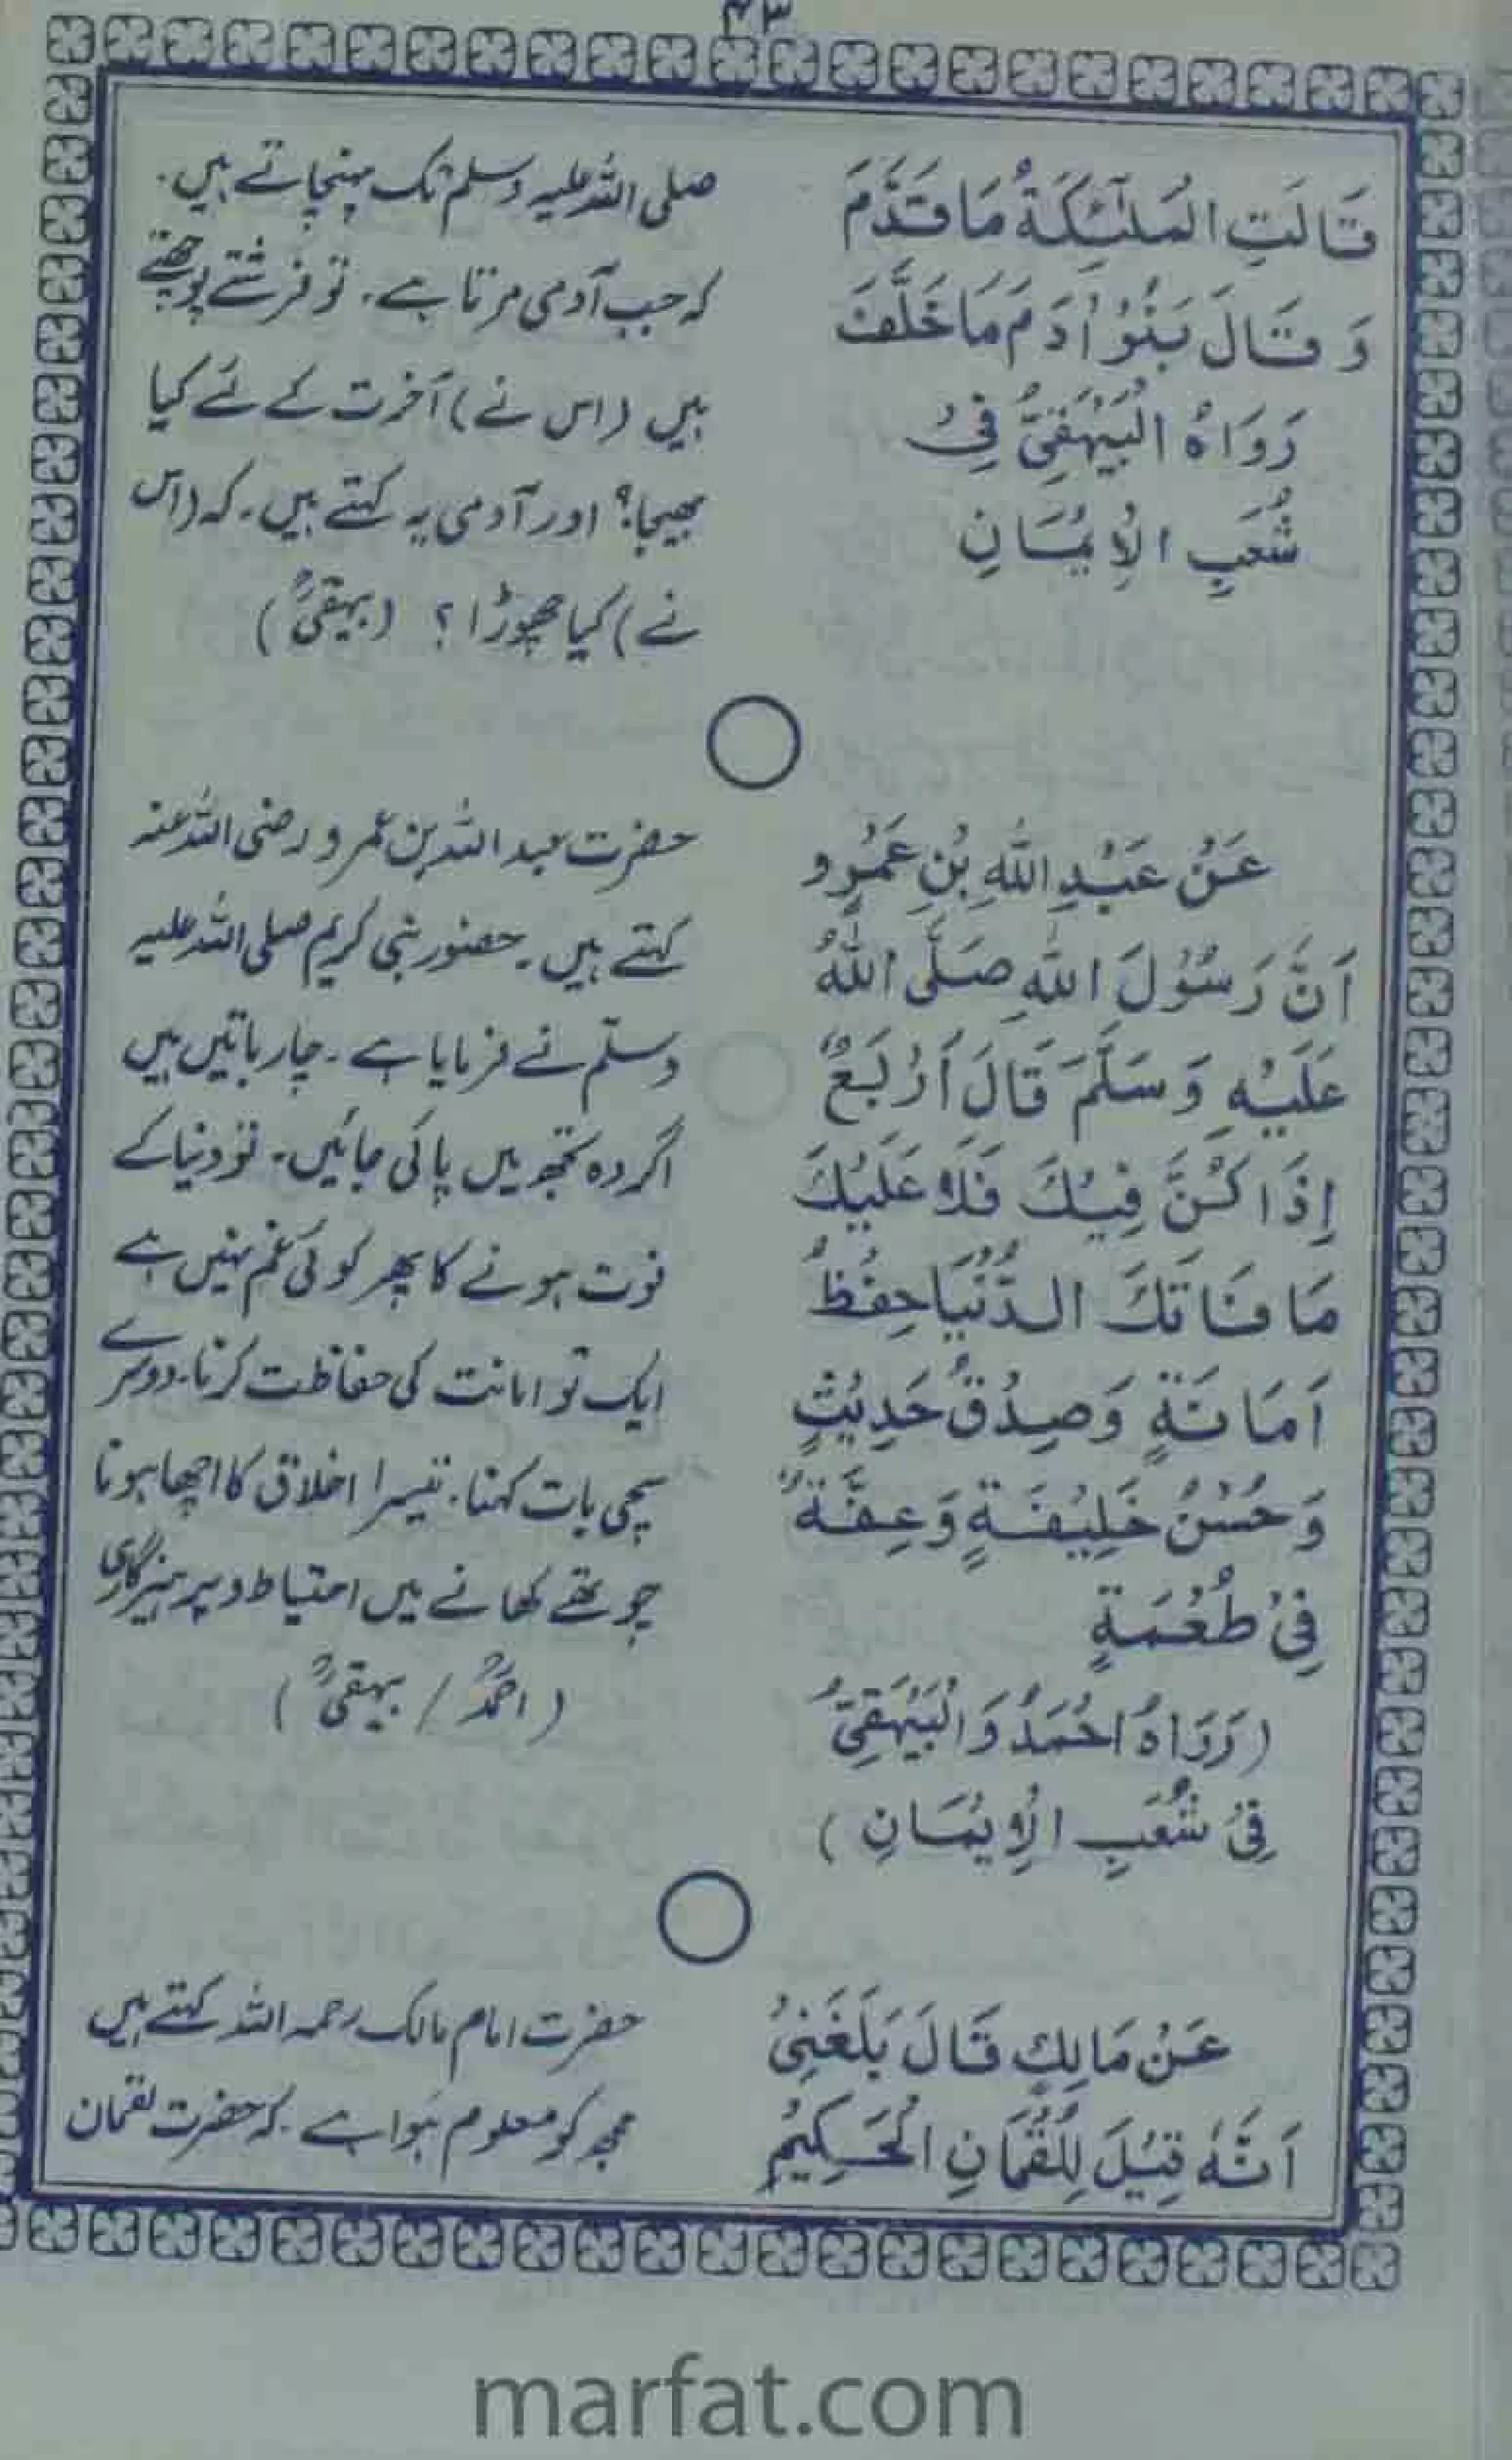 ۴۳
قَالَتِ الْمَلٰٓئِكَةُ مَا قَدَّمَ
وَ قَالَ بَنُوْ اٰدَمَ مَا خَلَّفَ
رَوَاهُ الْبَيْهَقِيُّ فِيْ
شُعَبِ الْاِيْمَانِ
صلی اللہ علیہ وسلم تک پہنچاتے ہیں۔
کہ جب آدمی مرتا ہے۔ تو فرشتے پوچھتے
ہیں (اس نے) آخرت کے لئے کیا
بھیجا؟ اور آدمی یہ کہتے ہیں۔ کہ (اس
نے) کیا چھوڑا؟ (بیہقیؒ)
عَنْ عَبْدِ اللهِ بْنِ عَمْرٍو
اَنَّ رَسُوْلَ اللهِ صَلَّى اللهُ
عَلَيْهِ وَسَلَّمَ قَالَ اَرْبَعٌ
اِذَا كُنَّ فِيْكَ فَلَا عَلَيْكَ
مَا فَاتَكَ الدُّنْيَا حِفْظُ
اَمَانَةٍ وَصِدْقُ حَدِيْثٍ
وَحُسْنُ خَلِيْقَةٍ وَعِفَّةٌ
فِيْ طُعْمَةٍ
(رَوَاهُ اَحْمَدُ وَالْبَيْهَقِيُّ
فِيْ شُعَبِ الْاِيْمَانِ)
حضرت عبد اللہ بن عمرو رضی اللہ عنہ
کہتے ہیں۔ حضور نبی کریم صلی اللہ علیہ
وسلّم نے فرمایا ہے۔ چار باتیں ہیں
اگر وہ تجھ میں پائی جائیں۔ تو دنیا کے
فوت ہونے کا پھر کوئی غم نہیں ہے
ایک تو امانت کی حفاظت کرنا۔ دوسرے
سچی بات کہنا۔ تیسرا اخلاق کا اچھا ہونا
چوتھے کھانے میں احتیاط و پرہیزگاری
(احمدؒ / بیہقیؒ)
عَنْ مَالِكٍ قَالَ بَلَغَنِيْ
اَنَّهٗ قِيْلَ لِلُقْمَانِ الْحَكِيْمِ
حضرت امام مالک رحمہ اللہ کہتے ہیں
مجھ کو معلوم ہوا ہے۔ کہ حضرت لقمان
marfat.com